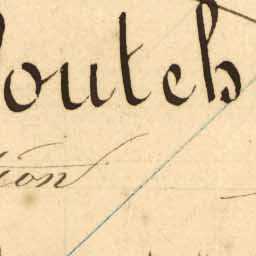 outch
tion